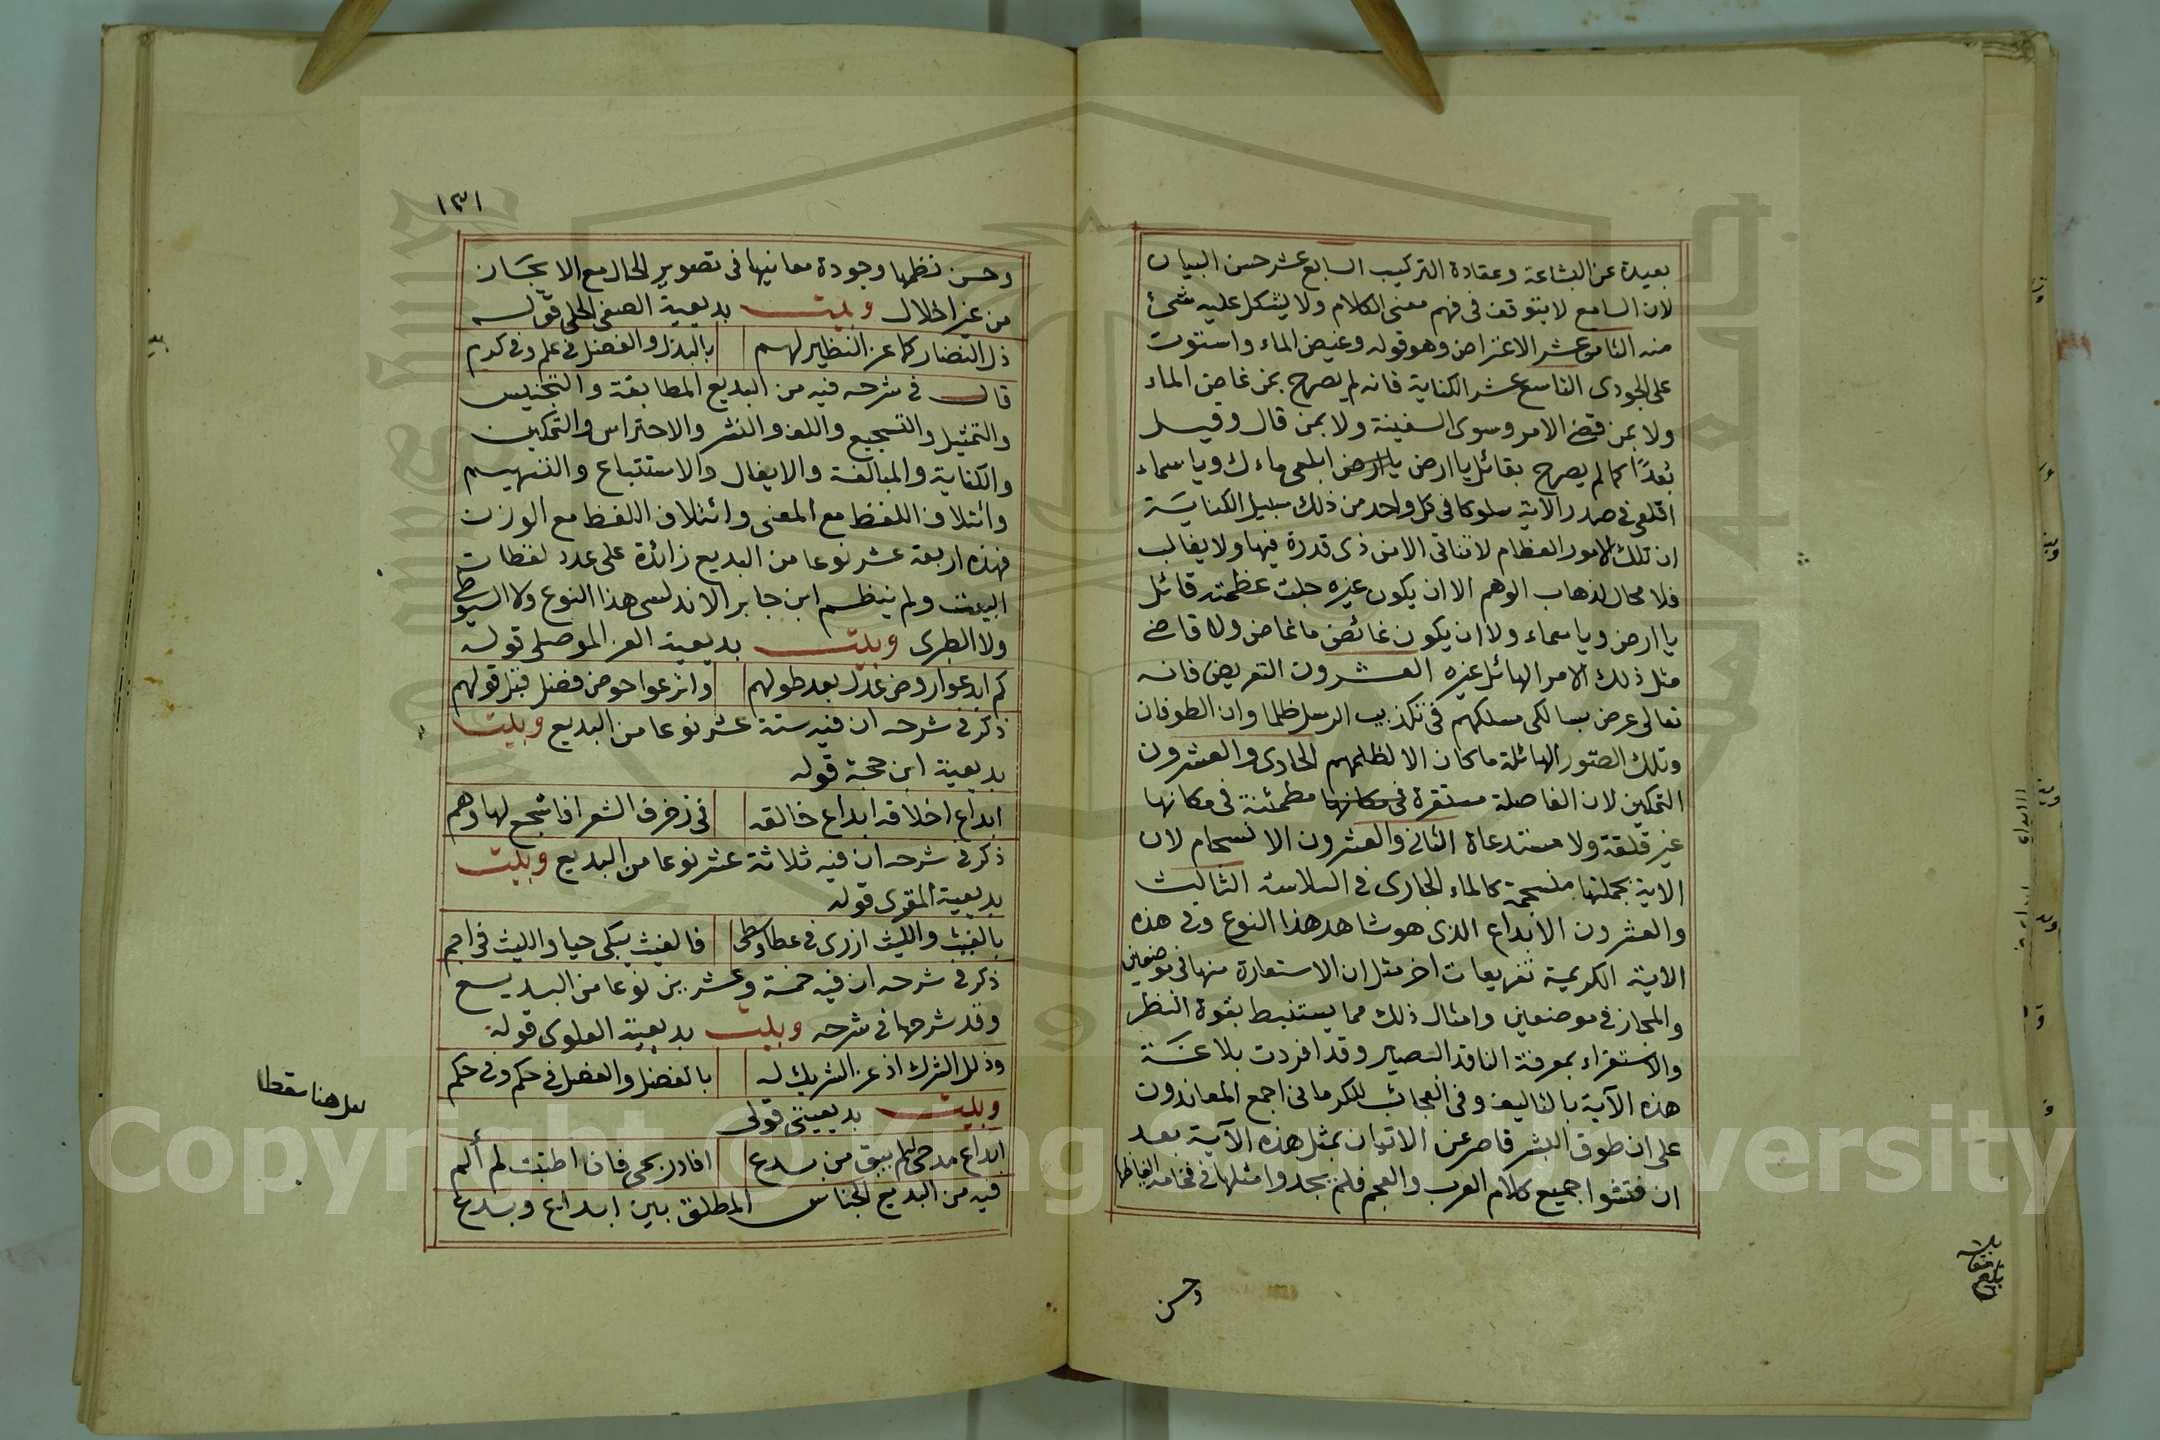 بعيدة عن البشاعة وعقادة التركيب السابع عشر حسن البيان
لان السامع لا يتوقف في فهم معنى الكلام ولا يشكل عليه شئ
منه الثامن عشر الاعتراض وهو قوله وغيض الماء واستوت
على الجودى التاسع عشر الكناية فانه لم يصرح بمن غاض الماء
ولا بمن قضى الامر وسوى السفينة ولا بمن قال وقيل
بُعْدًا كما لم يصرح بقائل يا ارض يا ارض ابلعى ماءك ويا سماء
اقلعى في صدر الآية سلوكا في كل واحد من ذلك سبيل الكناية
ان تلك الامور العظام لا تتاتى الا من ذى قدرة فيها ولا يغالب
فلا مجال لذهاب الوهم الا ان يكون غيره جلت عظمته قائل
يا ارض ويا سماء ولا ان يكون غائض ما غاض ولا قاضى
مثل ذلك الامر الهائل غيره العشرون التعريض فانه
تعالى عرض بسالكى مسلكهم في تكذيب الرسل ظلما وان الطوفان
وتلك الصور الهائلة ما كان الا لظلمهم الحادى والعشرون
التمكين لان الفاصلة مستقرة في مكانها مطمئنة في مكانها
غير قلقة ولا مستدعاة الثانى والعشرون الانسجام لان
الاية بجملتها منسجمة كالماء الجارى في السلاسة الثالث
والعشرون الابداع الذى هو شاهد هذا النوع وفى هذه
الاية الكريمة تفريعات اخر مثل ان الاستعارة منها في موضعين
والمجاز في موضعين وامثال ذلك مما يستنبط بقوة النظر
والاستقراء بمعرفة الناقد البصير وقد افردت بلاغة
هذه الآية بالتاليف وفى العجائب للكرمانى اجمع المعاندون
على ان طوق البشر قاصر عن الاتيان بمثل هذه الآية بعد
ان فتشوا جميع كلام العرب والعجم فلم يجدوا مثلها في فخامة الفاظها
وحسن
١٣١
وحسن نظمها وجودة معانيها في تصوير الحال مع الايجاز
من غير اخلال وبيت بديعية الصفى الحلى قوله
ذل النضار كما عز النظير لهم بالبذل والفضل في علم وفى كرم
قال في شرحه فيه من البديع المطابقة والتجنيس
والتمثيل والتسجيع واللف والنشر والاحتراس والتمكين
والكناية والمبالغة والايغال والاستتباع والتسهيم
وائتلاف اللفظ مع المعنى وائتلاف اللفظ مع الوزن
فهذه اربعة عشر نوعا من البديع زائدة على عدد لفظات
البيت ولم ينظم ابن جابر الاندلسى هذا النوع ولا السيوطى
ولا الطبرى وبيت بديعية العز الموصلى قوله
كم ابدعوا روض عدل بعد طولهم واترعوا حوض فضل قبل قولهم
ذكر في شرحه ان فيه ستة عشر نوعا من البديع وبيت
بديعية ابن حجة قوله
ابداع اخلاقه ابداع خالقه في زخرف الشعرا فاسجع لها وهم
ذكر في شرحه ان فيه ثلاثة عشر نوعا من البديع وبيت
بديعية المقرى قوله
بالغيث والليث ازرى في عطا وسطى فالغيث يبكى حيا والليث في اجم
ذكر في شرحه ان فيه خمسة وعشرين نوعا من البديع
وقد شرحها في شرحه وبيت بديعية العلوى قوله
وذلل الشرك اذ عز الشريك له بالفضل والفضل في حكم وفى حكم
لعل هنا سقطا
وبيت بديعيتى قولى
ابداع مدحى لم يبق من بدع افاد ربحى فان اطنبت لم ألم
فيه من البديع الجناس المطلق بين ابداع وبدع
Copyright © King University